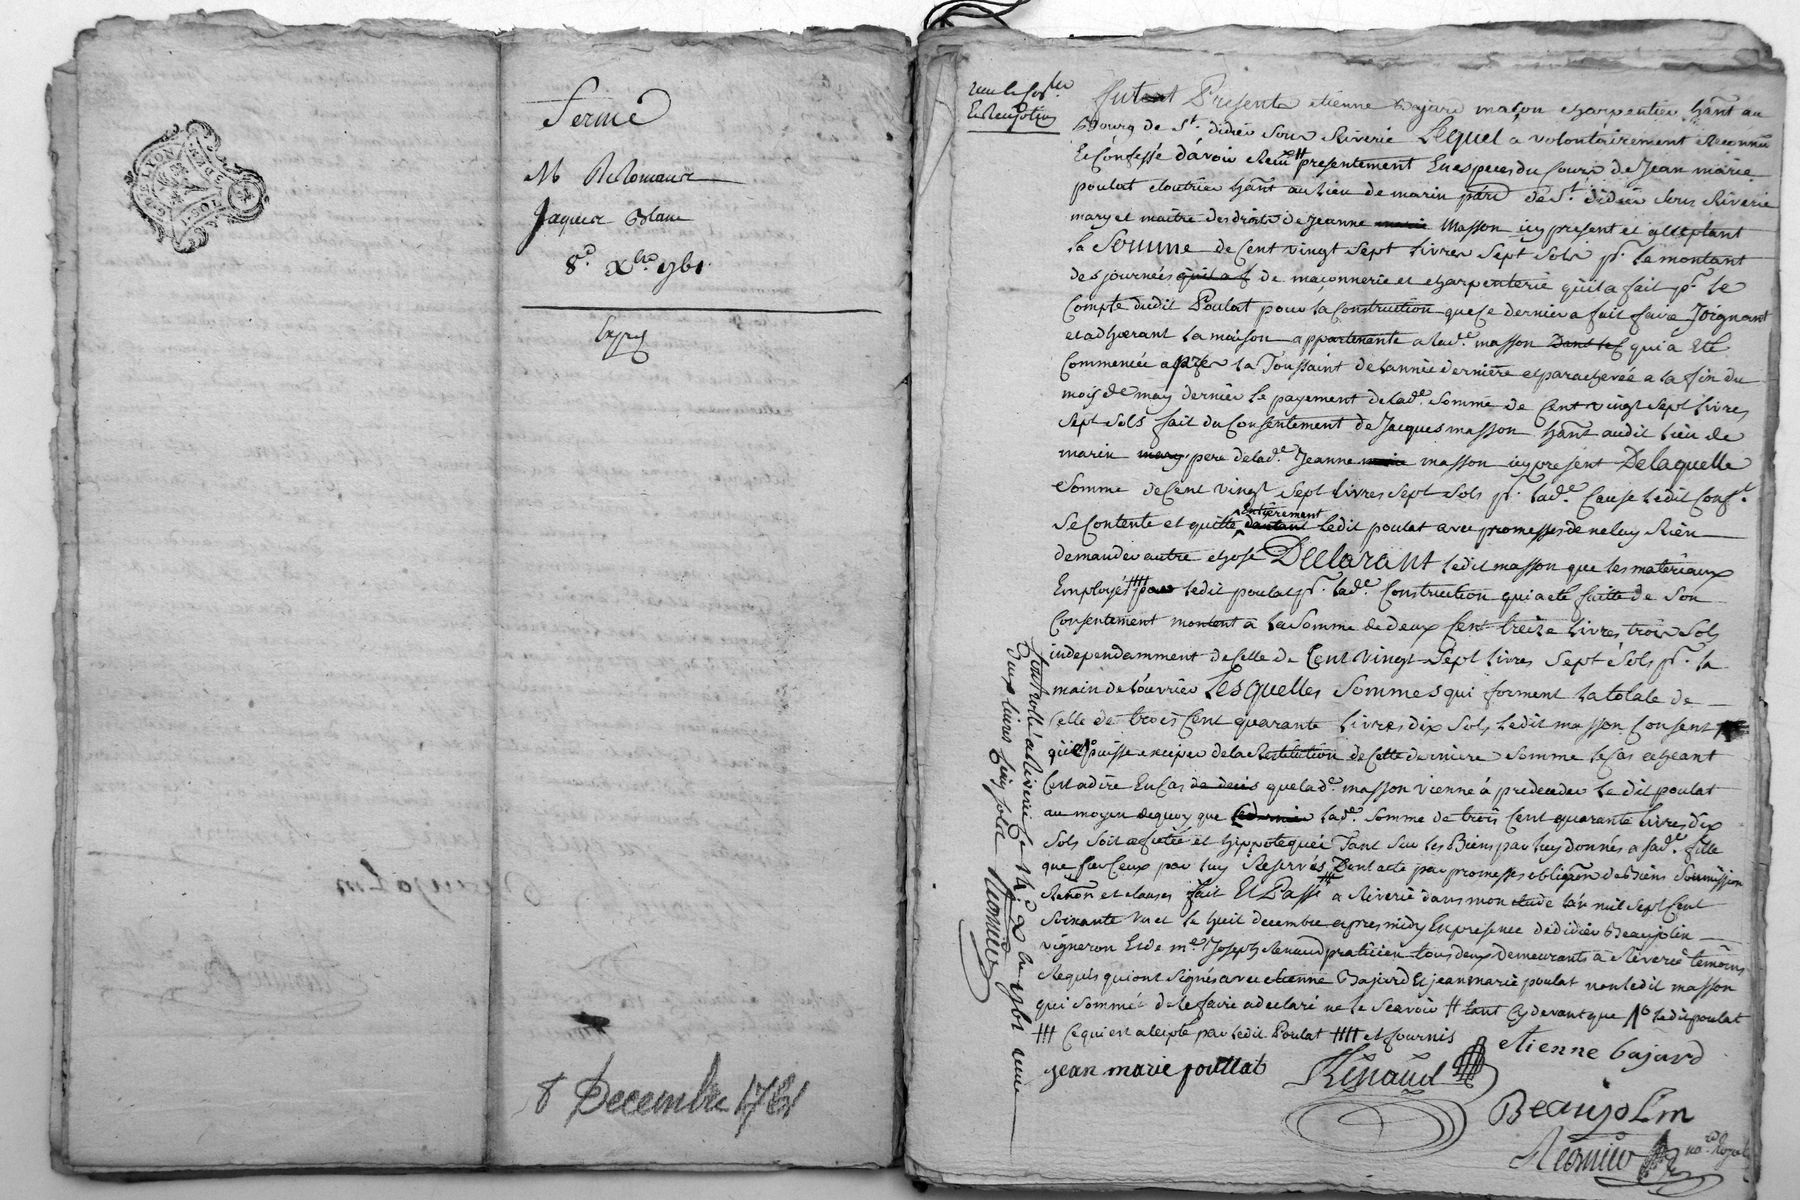 Ferme
M
Jaques Blanc
8.e Xbre 1761.
Expié
8 Decembre 1761
GEN DE LYON
Beaujolin
Fut Present etienne Bajard mason charpentier hânt au
Bourg de St. didier sous Riverie Lequel a volontairement Reconnu
Et Confessé d'avoir Recu # presentement En especes du Cours de Jean marie
poulat cloutrier hânt au lieu de marin parr. de St. didier sous Riverie
mary et maitre des droits de Jeanne Masson icy present et acceptant
la Somme de Cent vingt Sept Livres Sept Sols pr. le montant
des journées qu'il a f de maçonnerie et charpenterie qu'il a fait pr. le
Compte dudit Poulat pour la Construction que Ce dernier a fait faire Joignant
et adhœrant la maison appartenante a lade. masson Dans le qui a Eté
Commencée a la Toussaint de l'année derniere et parachevée a la fin du
mois de may dernier le payement delade. Somme de Cent vingt Sept livres
Sept Sols fait du Consentement de Jacques masson hânt audit lieu de
marin pere delade. Jeanne masson icy present De laquelle
Somme de Cent vingt Sept livres Sept Sols pr. lade. Cause ledit Conft.
Se Contente et quitte Entièrement d'autant ledit poulat avec promesses de ne luy Rien
demander autre chose Declarant ledit masson que les materiaux
Employés #### par ledit poulat pr. lade. Construction qui a eté faitte de Son
Consentement montent a la Somme de deux Cent treize livres trois Sols
independamment de Celle de Cent vingt Sept livres Sept Sols pr. la
main de l'ouvrier Lesquelles Sommes qui forment la totale de
Celle de trois Cent quarante livres dix Sols, ledit masson Consent
qu'il puisse exciper de la Restitution de Cette derniere Somme le Cas echeant
C'est a dire En Cas de deces que lade. masson vienne á predeceder le dit poulat
au moyen dequoy que lade. Somme de trois Cent quarante livres dix
Sols Soit afectée et hippotequée Tant Sur les Biens par luy donnés a sade. fille
que sur Ceux par luy Reservés Dont acte par promesses obligôn de Biens Soumission
Renôn et clauses fait Et Passé ### a Riverie dans mon etude l'an mil Sept Cent
Soixante un et le huit decembre apres midy En presence de didier Beaujolin
vigneron Et de me. Joseph Renaud praticien tous deux demeurants a Riverie temoins
Requis qui ont Signés avec etienne Bajard Et jean marie poulat non ledit masson
qui Sommé de le faire a declaré ne le Scavoir # tant Cy devant que ledit poulat
### Ce qui est accepté par ledit Poulat #### et fournis
jean marie poullat
Renaud
etienne bajard
Beaujolin
nore. Royal
Controllé a Riverie le 14e Xbre 1761 reçu
Deux livres Cinq Sols